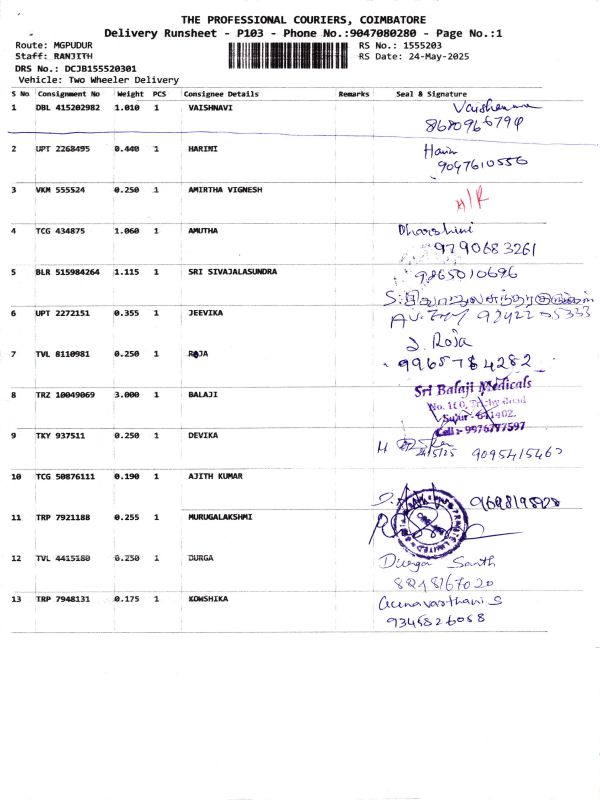 THE PROFESSIONAL COURIERS, COIMBATORE
Delivery Runsheet - P103 - Phone No.:9047080280 - Page No.:1
Route: MGPUDUR RS No.: 1555203
Staff: RANJITH RS Date: 24-May-2025
DRS No.: DCJB155520301
Vehicle: Two Wheeler Delivery
S No Consignment No Weight PCS Consignee Details Remarks Seal & Signature
1 DBL 415202982 1.010 1 VAISHNAVI
2 UPT 2268495 0.440 1 HARINI
9047610556
3 VKM 555524 0.250 1 AMIRTHA VIGNESH
4 TCG 434875 1.060 1 AMUTHA Dharshini
9790683261
5 BLR 515984264 1.115 1 SRI SIVAJALASUNDRA 9865010696
6 UPT 2272151 0.355 1 JEEVIKA
J. Roja
7 TVL 8110981 0.250 1 ROJA 9965784282
Sri Balaji Medicals
8 TRZ 10049069 3.000 1 BALAJI
Cell :- 9976777597
9 TKY 937511 0.250 1 DEVIKA 24/5/25 9095415463
10 TCG 50876111 0.190 1 AJITH KUMAR
11 TRP 7921188 0.255 1 MURUGALAKSHMI
12 TVL 4415180 0.250 1 DURGA Durga Santh
8248167020
13 TRP 7948131 0.175 1 KOWSHIKA Gunavarthani S
9345826058